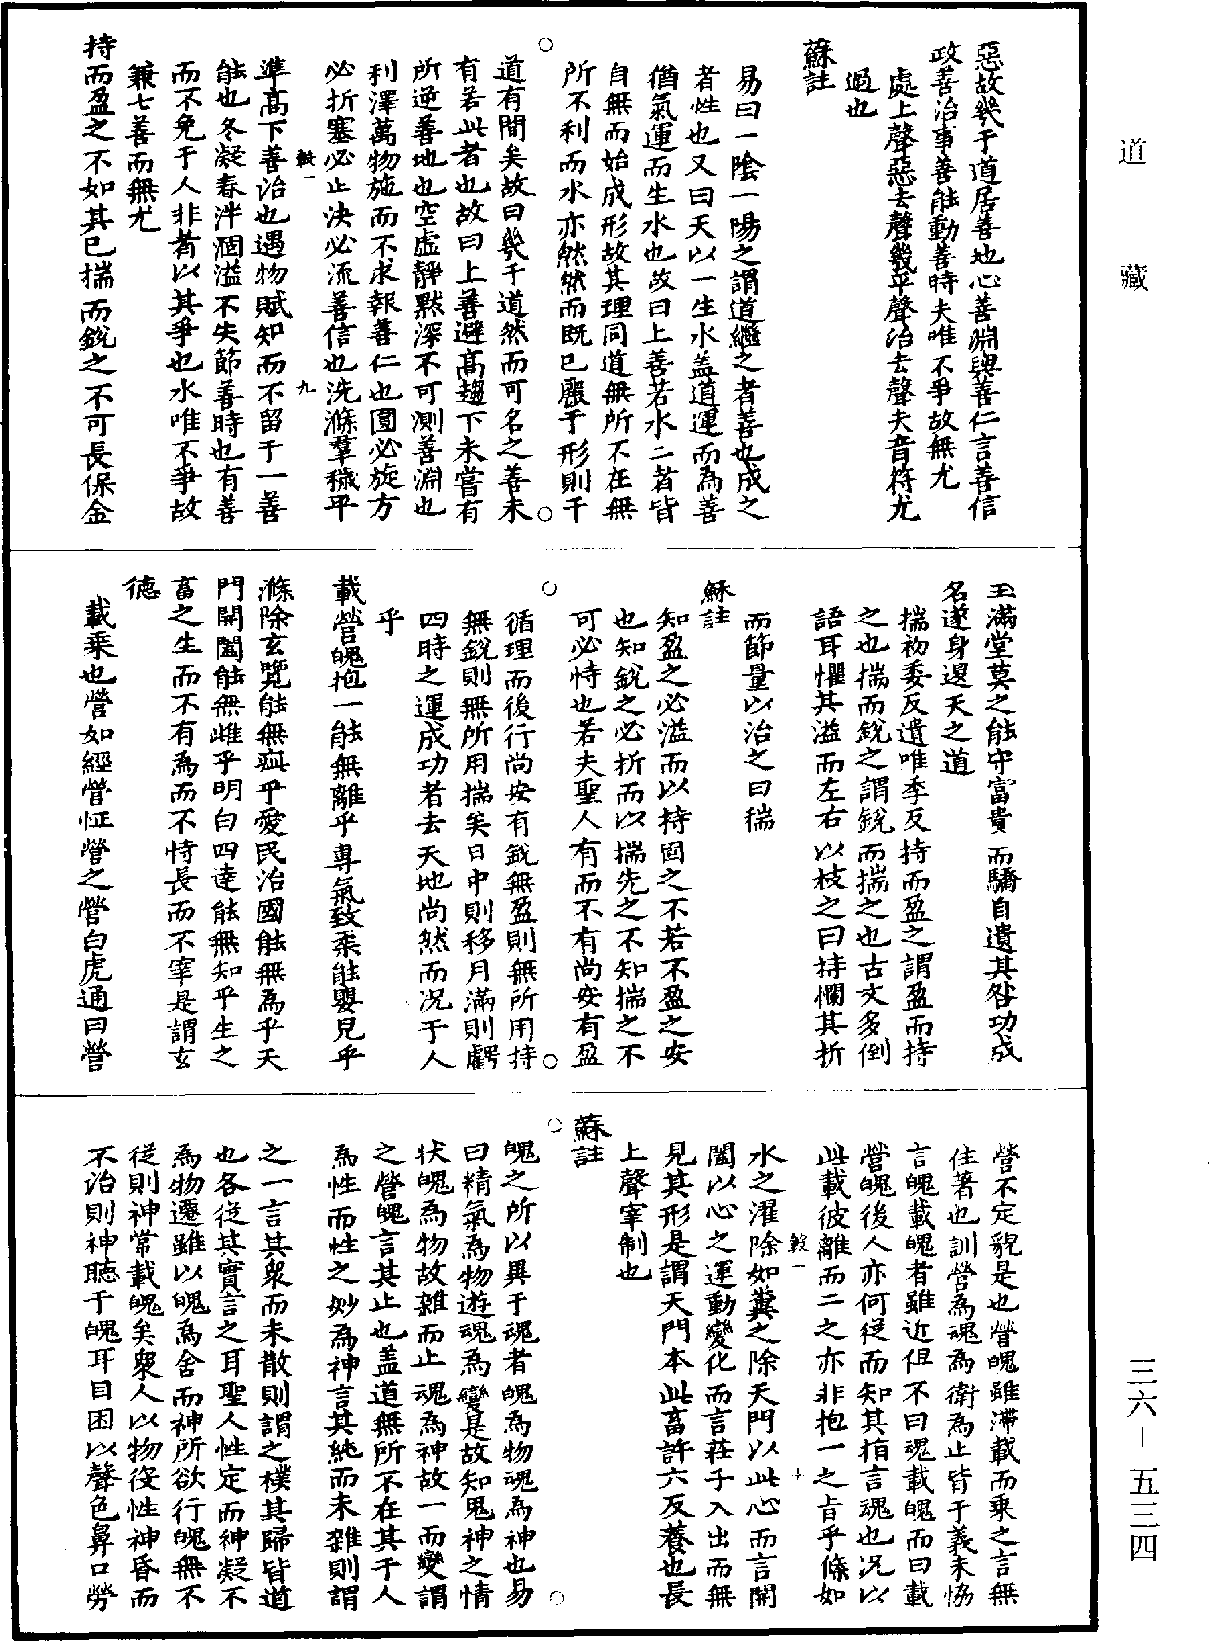 道藏
惡故幾于道居善地心善淵與善仁言善信
政善治事善能動善時夫唯不爭故無尤
處上聲惡去聲幾平聲治去聲夫音符尤
過也
蘇註
易曰一陰一陽之謂道繼之者善也成之
者性也又曰天以一生水蓋道運而為善
猶氣運而生水也故曰上善若水二者皆
自無而始成形故其理同道無所不在無
所不利而水亦然然而既已麗于形則于
道有間矣故曰幾于道然而可名之善未
有若此者也故曰上善避高趨下未嘗有
所逆善地也空虛靜默深不可測善淵也
利澤萬物施而不求報善仁也圓必旋方
必折塞必止決必流善信也洗滌羣穢平
九
準高下善治也遇物賦知而不留于一善
能也冬凝春泮涸溢不失節善時也有善
而不免于人非者以其爭也水唯不爭故
兼七善而無尤
持而盈之不如其已揣而銳之不可長保金
玉滿堂莫之能守富貴而驕自遺其咎功成
名遂身退天之道
揣初委反遺唯季反持而盈之謂盈而持
之也揣而銳之謂銳而揣之也古文多倒
語耳懼其溢而左右以枝之曰持欄其折
而節量以治之曰揣
蘇註
知盈之必溢而以持固之不若不盈之安
也知銳之必折而以揣先之不知揣之不
可必恃也若夫聖人有而不有尚安有盈
循理而後行尚安有銳無盈則無所用持
無銳則無所用揣矣日中則移月滿則虧
四時之運成功者去天地尚然而况于人
乎
載營魄抱一能無離乎專氣致柔能嬰兒乎
滌除玄覽能無疵乎愛民治國能無為乎天
門開闔能無雌乎明白四達能無知乎生之
畜之生而不有為而不恃長而不宰是謂玄
德
載乘也營如經營怔營之營白虎通曰營
營不定貌是也營魄雖滯載而乘之言無
住著也訓營為魂為衛為止皆于義未愜
言魄載魄者雖近但不曰魂載魄而曰載
營魄後人亦何從而知其指言魂也况以
此載彼離而二之亦非抱一之旨乎滌如
十
水之濯除如糞之除天門以此心而言開
闔以心之運動變化而言莊子入出而無
見其形是謂天門本此畜許六反養也長
上聲宰制也
蘇註
魄之所以異于魂者魄為物魂為神也易
曰精氣為物遊魂為變是故知鬼神之情
狀魄為物故雜而止魂為神故一而變謂
之營魄言其止也蓋道無所不在其于人
為性而性之妙為神言其純而未雜則謂
之一言其衆而未散則謂之樸其歸皆道
也各從其實言之耳聖人性定而神凝不
為物遷雖以魄為舍而神所欲行魄無不
從則神常載魄矣衆人以物役性神昏而
不治則神聽于魄耳目困以聲色鼻口勞
三六－五三四